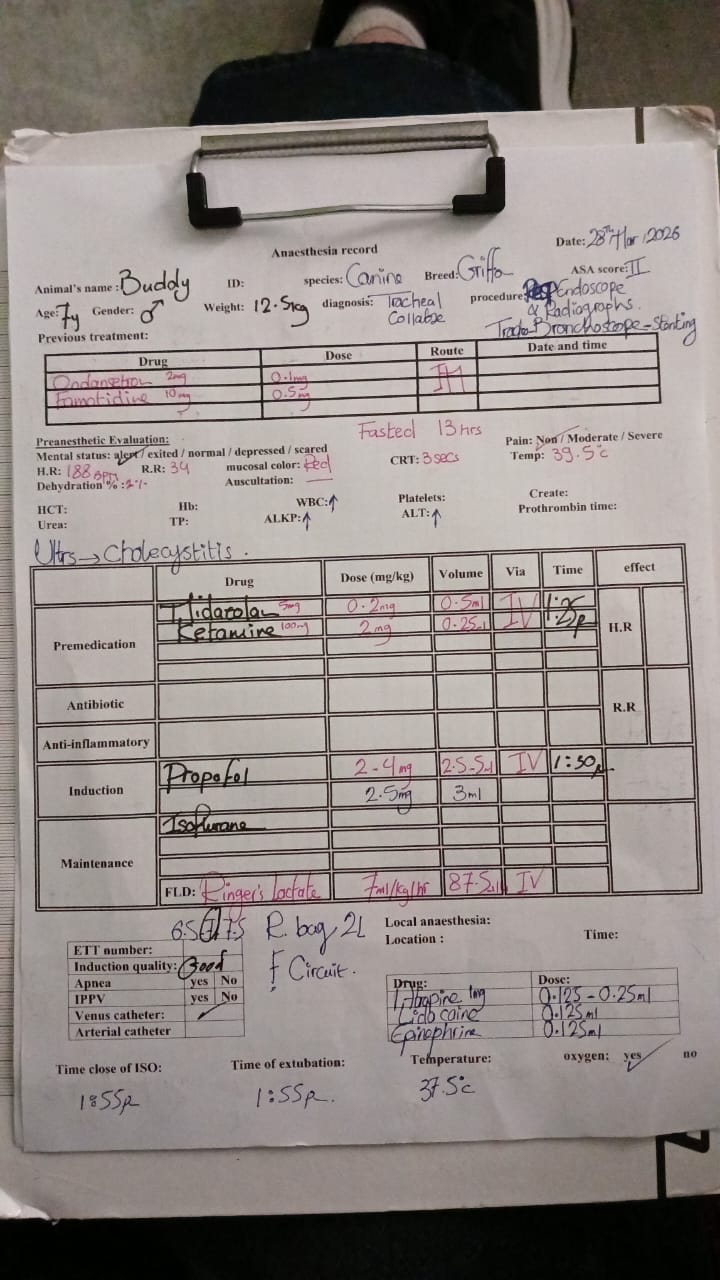 Anaesthesia record
Date: 28th Mar /2026
Animal's name : Buddy ID: species: Canine Breed: Griffo ASA score: II
Age: 7y Gender: ♂ Weight: 12.5kg diagnosis: Tracheal Collabse procedure: Endoscope & Radiographs.
Bronchoscope - Stenting
Previous treatment:
Drug Dose Route Date and time
Ondansetron 2mg 0.1mg IM
Famotidine 10mg 0.5mg
Fasted 13 hrs
Preanesthetic Evaluation:
Mental status: alert / exited / normal / depressed / scared Pain: Non / Moderate / Severe
H.R: 188 BPM R.R: 34 mucosal color: Red CRT: 3 secs Temp: 39.5°c
Dehydration % : 2% Auscultation: —
HCT: Hb: WBC:↑ Platelets: Create:
Urea: TP: ALKP:↑ ALT:↑ Prothrombin time:
Ultrs → Cholecystitis.
Drug Dose (mg/kg) Volume Via Time effect
Premedication
Midazolam 5mg 0.2mg 0.5ml IV 1:25p
Ketamine 100mg 2mg 0.25ml IV
H.R
Antibiotic
R.R
Anti-inflammatory
Induction
Propofol 2-4mg 2.5-5ml IV 1:30p
2.5mg 3ml
Maintenance
Isoflurane
FLD: Ringer's lactate 7ml/kg/hr 87.5ml IV
6.5/7/7.5 R. bag 2L
F Circuit.
Local anaesthesia:
Location : Time:
ETT number:
Induction quality: Good
Apnea yes No
IPPV yes No
Venus catheter: ✓
Arterial catheter
Drug: Dose:
Atropine 1mg 0.125 - 0.25ml
Lidocaine 0.125ml
Epinephrine 0.125ml
Time close of ISO: Time of extubation: Temperature: oxygen: yes ✓ no
1:55p 1:55p. 37.5°c